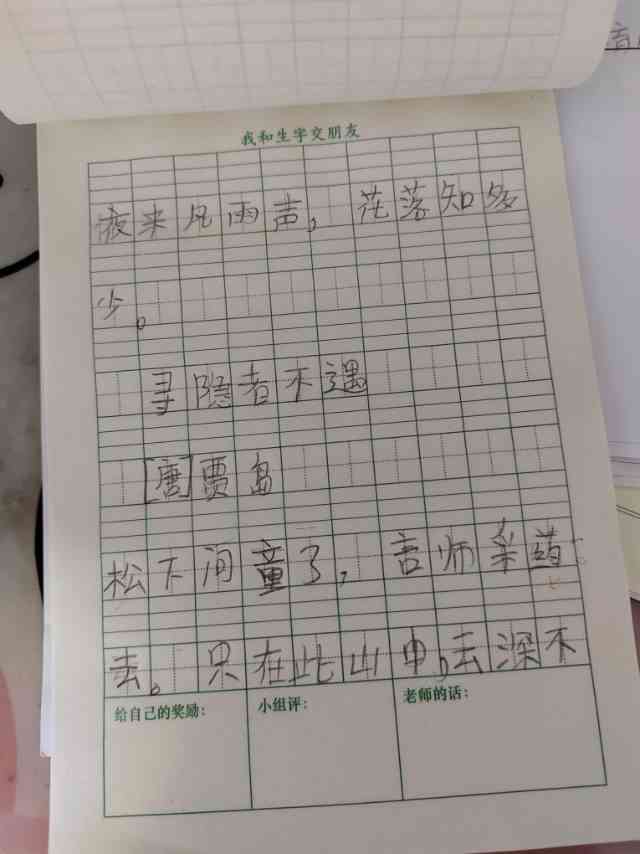 我和生字交朋友
夜来风雨声，花落知多
少。
寻隐者不遇
[唐]贾岛
松下问童子，言师采药
去。只在此山中，云深不
给自己的奖励：
小组评：
老师的话：